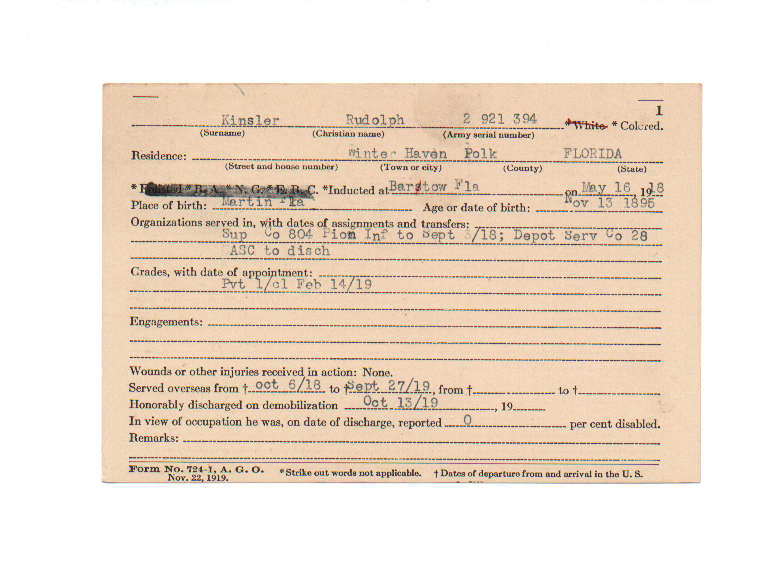 1
Kinsler Rudolph 2 921 394 *White *Colored.
(Surname) (Christian name) (Army serial number)
Residence: Winter Haven Polk FLORIDA
(Street and house number) (Town or city) (County) (State)
* R. A. * N. G. * E. R. C. *Inducted at Barstow Fla on May 16, 1918
Place of birth: Martin Fla Age or date of birth: Nov 13 1895
Organizations served in, with dates of assignments and transfers:
Sup Co 804 Pion Inf to Sept /18; Depot Serv Co 28
ASC to disch
Grades, with date of appointment:
Pvt 1/cl Feb 14/19
Engagements:
Wounds or other injuries received in action: None.
Served overseas from † oct 6/18 to † Sept 27/19, from † to †
Honorably discharged on demobilization Oct 13/19, 19
In view of occupation he was, on date of discharge, reported 0 per cent disabled.
Remarks:
Form No. 724-1, A. G. O. *Strike out words not applicable. † Dates of departure from and arrival in the U. S.
Nov. 22, 1919.